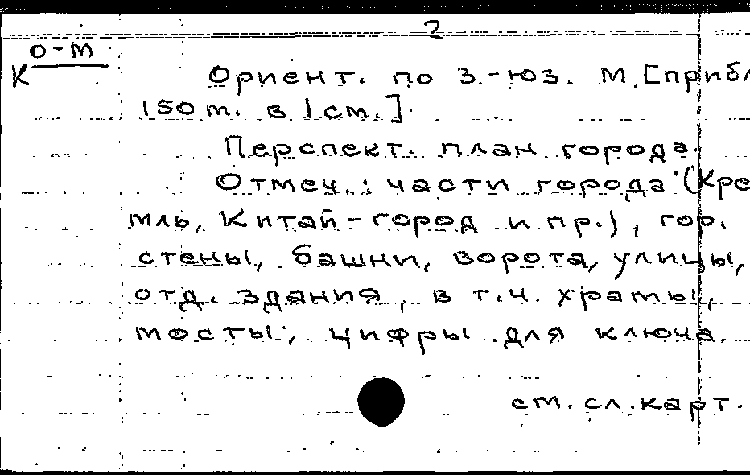 2
о-м
К
Ориент. по З.-ЮЗ. М.[прибл
150 м. в 1 см.].
Перспект. план города.
Отмеч.: части города (Кре-
мль, Китай-город и пр.), гор.
стены, башни, ворота, улицы,
отд. здания, в т.ч. храмы,
мосты; цифры для ключа.
см. сл. карт.